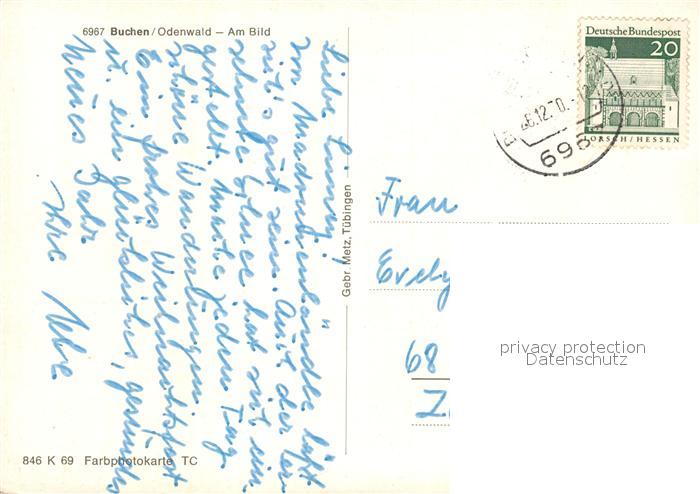 6967 Buchen/Odenwald – Am Bild
Liebe
vom Madonnenländle läßt
sich's gut sein. Auch der er-
sehnte Schnee hat sich ein-
gestellt. Mache jeden Tag
schöne Wanderungen.
Ein frohes Weihnachtsfest
u. ein glückliches, gesundes
Neues Jahr
Ihre
Gebr. Metz, Tübingen
846 K 69 Farbphotokarte TC
Deutsche Bundespost
20
LORSCH/HESSEN
.12.70.
Frau
68
privacy protection
Datenschutz